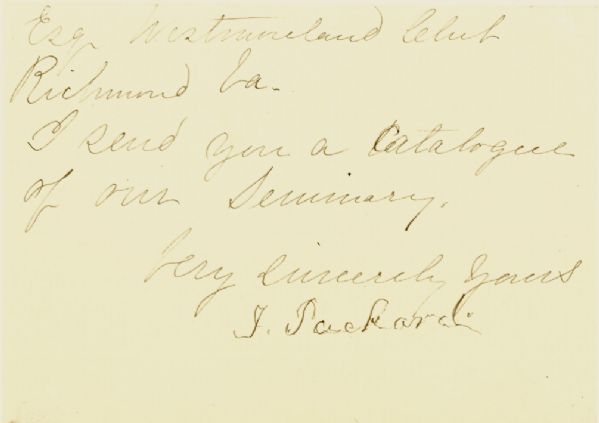 Esq Westmoreland Club
Richmond Va.
I send you a Catalogue
of our Seminary.
Very Sincerely Yours
J. Packard